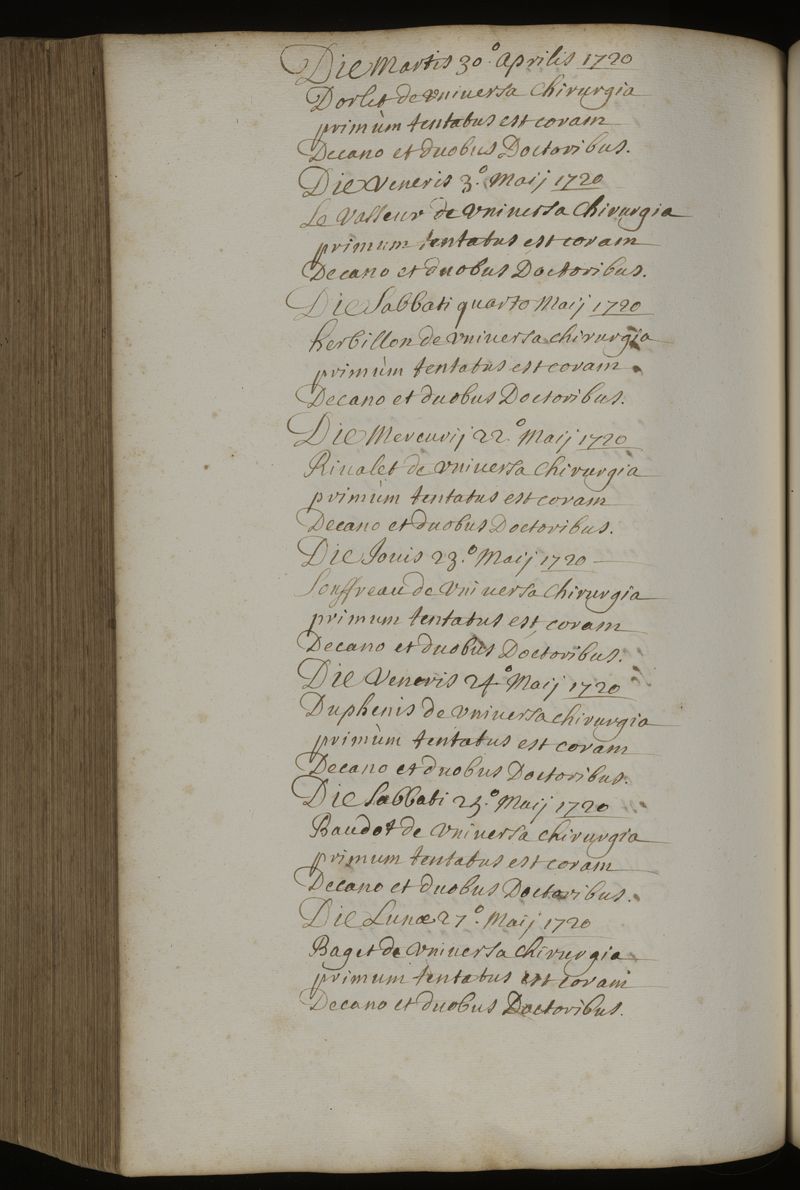 Die Martis 30.° Aprilis 1720
Dorlet de vniuersa Chirurgia
primùm tentatus est coram
Decano et duobus Doctoribus.
Die Veneris 3.° Maij 1720
Le Vasseur de vniuersa Chirurgia
primum tentatus est coram
Decano et duobus Doctoribus.
Die Sabbati quarto Maij 1720
herbillon de vniuersa chirurgia
primùm tentatus est coram
Decano et duobus Doctoribus.
Die Mercurij 22.° Maij 1720
Riualet de vniuersa Chirurgia
primùm tentatus est coram
Decano et duobus Doctoribus.
Die Jouis 23.° Maij 1720
Souffreau de vniuersa Chirurgia
primum tentatus est coram
Decano et duobus Doctoribus.
Die Veneris 24.° Maij 1720
Duphenis de vniuersa chirurgia
primùm tentatus est coram
Decano et duobus Doctoribus.
Die Sabbati 25.° Maij 1720
Baudot de vniuersa chirurgia
primum tentatus est coram
Decano et duobus Doctoribus.
Die Lunæ 27.° Maij 1720
Baget de vniuersa Chirurgia
primum tentatus est coram
Decano et duobus Doctoribus.